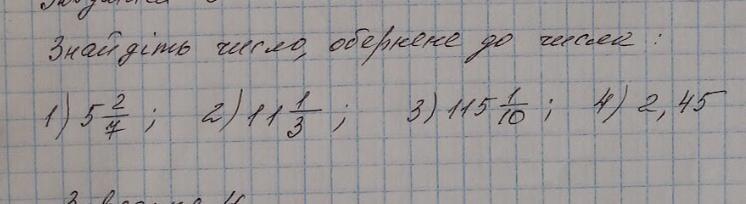 Знайдіть число, обернене до числа :
1) 5 2/7 ; 2) 11 1/3 ; 3) 115 1/10 ; 4) 2,45